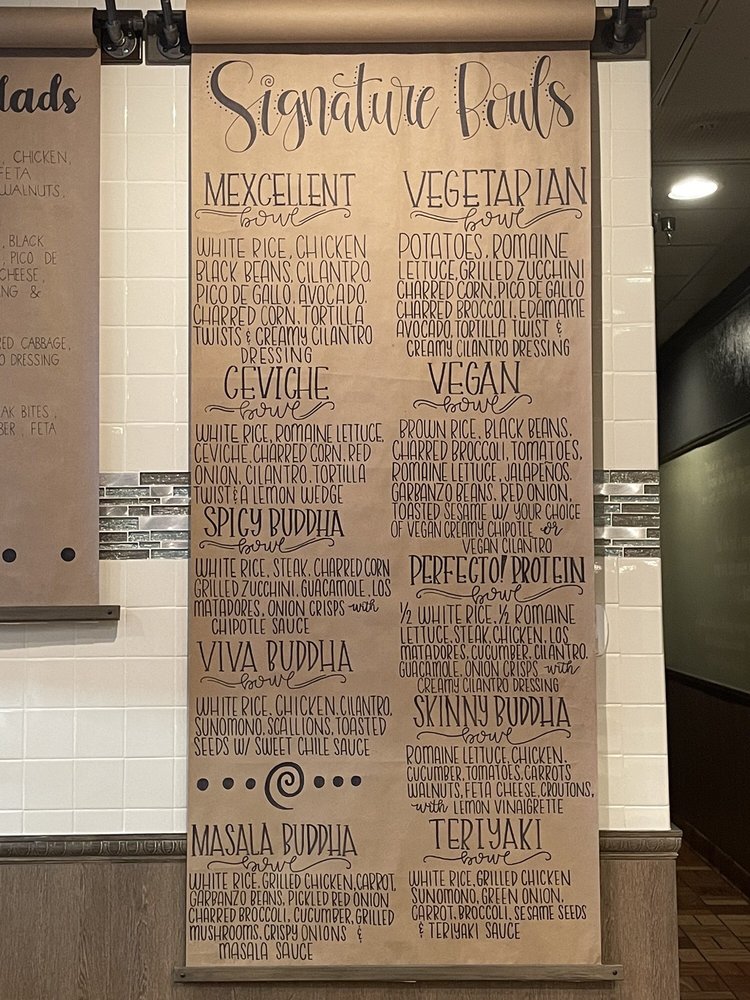 lads
, CHICKEN,
FETA
WALNUTS,
, BLACK
, PICO DE
CHEESE,
NG &
RED CABBAGE,
O DRESSING
AK BITES,
BER, FETA
Signature Bowls
MEXCELLENT
bowl
WHITE RICE, CHICKEN
BLACK BEANS, CILANTRO,
PICO DE GALLO, AVOCADO,
CHARRED CORN, TORTILLA
TWISTS & CREAMY CILANTRO
DRESSING
CEVICHE
bowl
WHITE RICE, ROMAINE LETTUCE,
CEVICHE, CHARRED CORN, RED
ONION, CILANTRO, TORTILLA
TWIST & A LEMON WEDGE
SPICY BUDDHA
bowl
WHITE RICE, STEAK, CHARRED CORN
GRILLED ZUCCHINI, GUACAMOLE, LOS
MATADORES, ONION CRISPS with
CHIPOTLE SAUCE
VIVA BUDDHA
bowl
WHITE RICE, CHICKEN, CILANTRO,
SUNOMONO, SCALLIONS, TOASTED
SEEDS W/ SWEET CHILE SAUCE
MASALA BUDDHA
bowl
WHITE RICE, GRILLED CHICKEN, CARROT,
GARBANZO BEANS, PICKLED RED ONION
CHARRED BROCCOLI, CUCUMBER, GRILLED
MUSHROOMS, CRISPY ONIONS &
MASALA SAUCE
VEGETARIAN
bowl
POTATOES, ROMAINE
LETTUCE, GRILLED ZUCCHINI
CHARRED CORN, PICO DE GALLO
CHARRED BROCCOLI, EDAMAME
AVOCADO, TORTILLA TWIST &
CREAMY CILANTRO DRESSING
VEGAN
bowl
BROWN RICE, BLACK BEANS,
CHARRED BROCCOLI, TOMATOES,
ROMAINE LETTUCE, JALAPEÑOS,
GARBANZO BEANS, RED ONION,
TOASTED SESAME W/ YOUR CHOICE
OF VEGAN CREAMY CHIPOTLE or
VEGAN CILANTRO
PERFECTO! PROTEIN
bowl
½ WHITE RICE, ½ ROMAINE
LETTUCE, STEAK, CHICKEN, LOS
MATADORES, CUCUMBER, CILANTRO,
GUACAMOLE, ONION CRISPS with
CREAMY CILANTRO DRESSING
SKINNY BUDDHA
bowl
ROMAINE LETTUCE, CHICKEN,
CUCUMBER, TOMATOES, CARROTS
WALNUTS, FETA CHEESE, CROUTONS,
with LEMON VINAIGRETTE
TERIYAKI
bowl
WHITE RICE, GRILLED CHICKEN
SUNOMONO, GREEN ONION,
CARROT, BROCCOLI, SESAME SEEDS
& TERIYAKI SAUCE